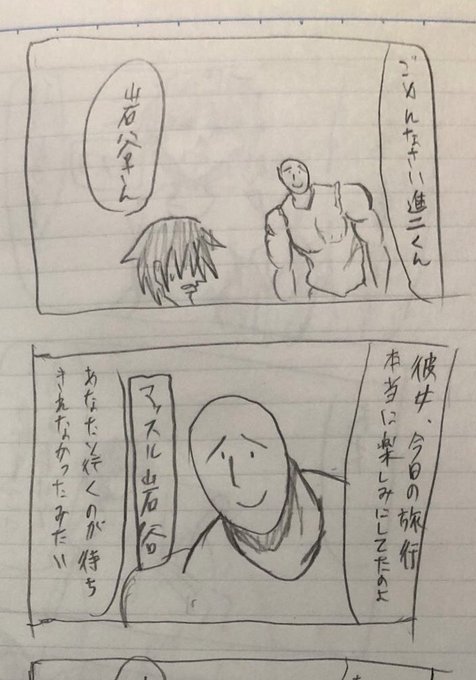 ごめんなさい進二くん
岩谷さん
彼女、今日の旅行
本当に楽しみにしてたのよ
マッスル岩谷
あなたと行くのが待ち
きれなかったみたい